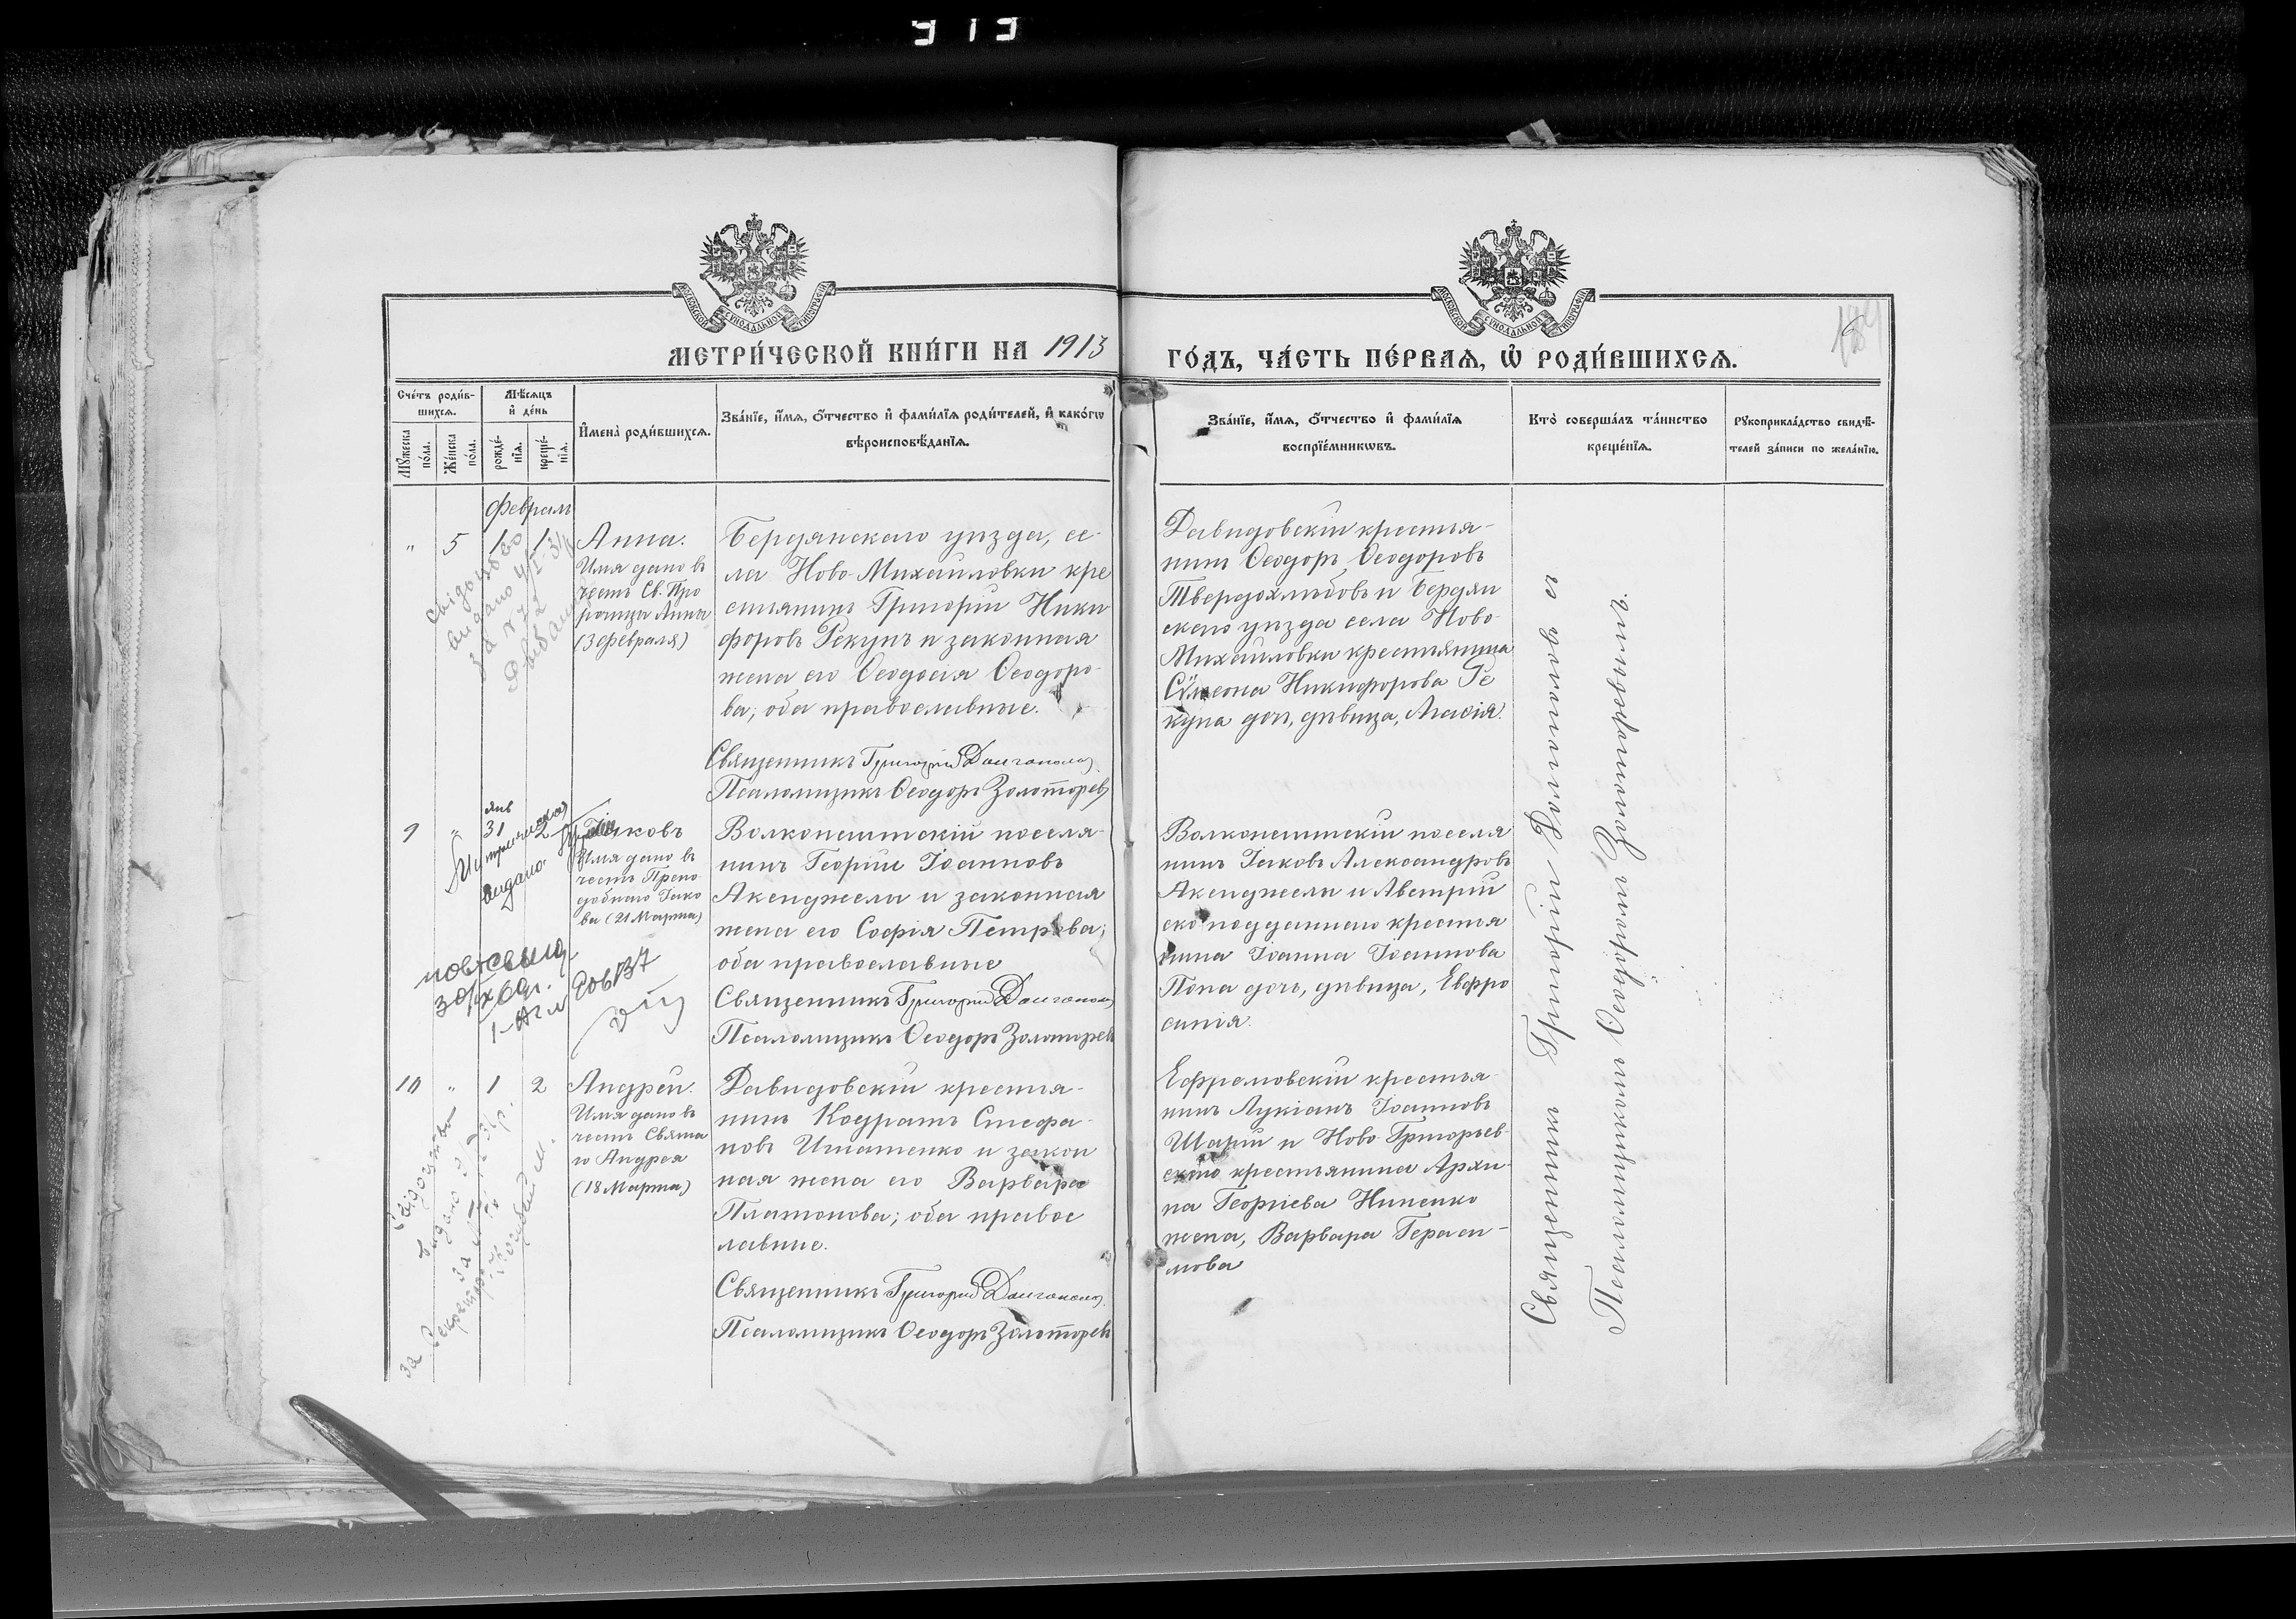 МЕТРИ́ЧЕСКОЙ КНИ́ГИ НА 1913
ГО́ДЪ, ЧА́СТЬ ПЕ́РВАѦ, Ѡ҆ РОДИ́ВШИХСѦ.
Сче́тъ роди́в-
шихсѧ.
Мѣ́сѧцъ
и҆ де́нь
Мꙋ́жеска
по́ла.
Же́нска
по́ла.
рожде́-
нїѧ.
креще́-
нїѧ.
И҆мена̀ роди́вшихсѧ.
Зва́нїе, и҆́мѧ, ѻ҆́тчество и҆ фами́лїѧ роди́телей, и҆ како́гѡ
вѣроисповѣ́данїѧ.
Зва́нїе, и҆́мѧ, ѻ҆́тчество и҆ фами́лїѧ
воспрїе́мникѡвъ.
Кто̀ соверша́лъ та́инство
креще́нїѧ.
Рꙋкоприкла́дство свидѣ́-
телей за́писи по жела́нїю.
Февраль
" 5 1 1
Анна.
Имя дано въ
честь Св. Про
роицы Анны
(3 февраля)
Бердянскаго уѣзда, се-
ла Ново-Михайловки кре
стьянинъ Григорій Ники
форовъ Гекунъ и законная
жена его Ѳеодосія Ѳеодоро-
ва; оба православные.
Священникъ Григорій Долгополов
Псаломщикъ Ѳеодоръ Золоторевъ
Давидовскій крестья-
нинъ Ѳеодоръ Ѳеодоровъ
Твердохлѣбовъ и Бердян
скаго уѣзда села Ново
Михайловки крестьянина
Сѷмеона Никифорова Ге
куна дочь, дѣвица, Агафія.
9 " янв 31 2
Іаковъ
Имя дано въ
честь Препо
добнаго Іако
ва (21 Марта)
Волконештскій поселя-
нинъ Георгій Іоанновъ
Акенджели и законная
жена его Софія Петрова;
оба православные
Священникъ Григорій Долгополов
Псаломщикъ Ѳеодоръ Золоторевъ
Волконештскій поселя
нинъ Іаковъ Александровъ
Акенджели и Австрій
ско подданнаго крестья
нина Іоанна Іоаннова
Попа дочь, дѣвица, Евфро
синія.
10 " 1 2
Андрей.
Имя дано въ
честь Свята
го Андрея
(18 Марта)
Давидовскій крестья-
нинъ Кодратъ Стефа-
новъ Игнатенко и закон
ная жена его Варвара
Платонова; оба правос
лавные.
Священникъ Григорій Долгополов
Псаломщикъ Ѳеодоръ Золоторевъ
Ефремовскій крестья-
нинъ Лукіанъ Іоанновъ
Шарій и Ново-Григорьев-
скаго крестьянина Архи-
па Георгіева Ниненко
жена, Варвара Гераси-
мова
Священникъ Григорій Долгополовъ съ
Псаломщикомъ Ѳеодоромъ Золоторевымъ.